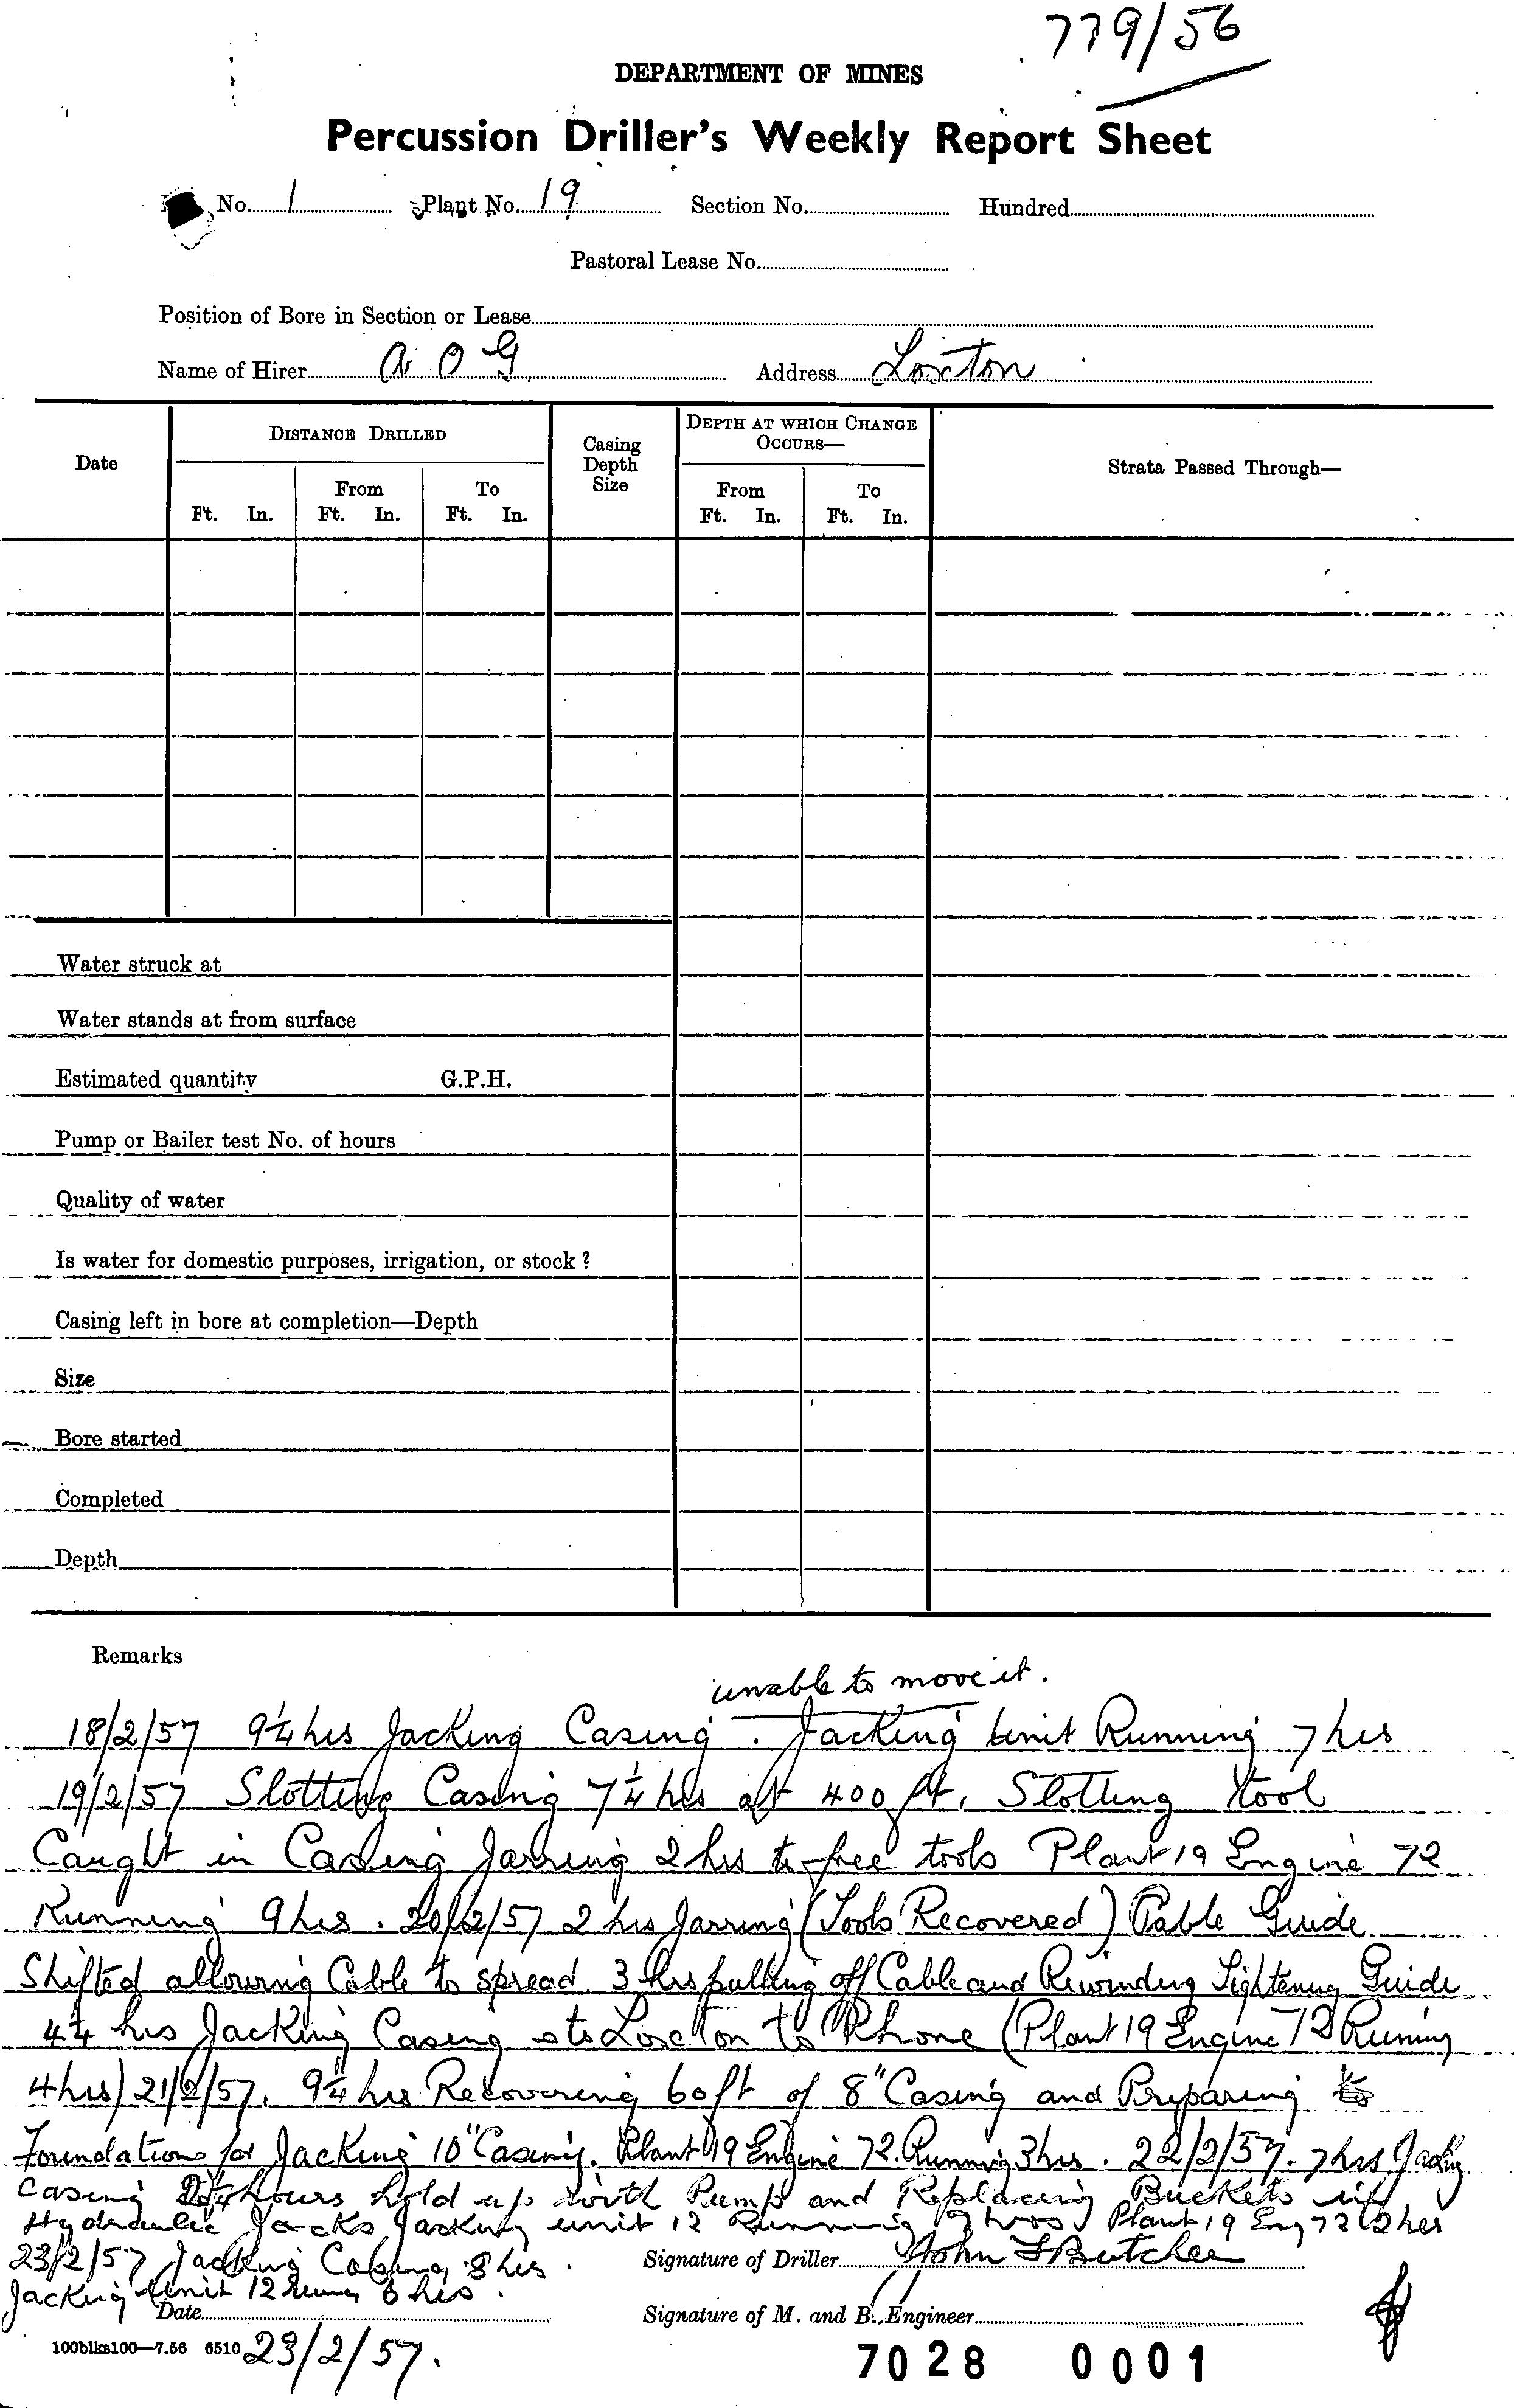 779/56
DEPARTMENT OF MINES
Percussion Driller's Weekly Report Sheet
No. 1 Plant No. 19 Section No. Hundred
Pastoral Lease No.
Position of Bore in Section or Lease
Name of Hirer A O G Address Loxton
Date
DISTANCE DRILLED
Casing Depth Size
DEPTH AT WHICH CHANGE OCCURS—
Strata Passed Through—
From To From To
Ft. In. Ft. In. Ft. In. Ft. In. Ft. In.
Water struck at
Water stands at from surface
Estimated quantity G.P.H.
Pump or Bailer test No. of hours
Quality of water
Is water for domestic purposes, irrigation, or stock ?
Casing left in bore at completion—Depth
Size
Bore started
Completed
Depth
Remarks
unable to move it.
18/2/57 9¼ hrs Jacking Casing. Jacking Unit Running 7 hrs
19/2/57 Slotting Casing 7¼ hrs at 400 ft. Slotting tool
Caught in Casing Jarring 2 hrs to free tools Plant 19 Engine 72
Running 9 hrs. 20/2/57 2 hrs Jarring (Tools Recovered) Cable Guide
Shifted allowing Cable to spread 3 hrs pulling off Cable and Rewinding Tightening Guide
4¼ hrs Jacking Casing Loxton to Phone (Plant 19 Engine 72 Runing
4 hrs) 21/2/57. 9¼ hrs Recovering 60 ft of 8" Casing and Preparing
Foundations for Jacking 10" Casing. Plant 19 Engine 72 Running 3 hrs. 22/2/57. 7 hrs Jacking
Casing 2¼ hours hold up with Pump and Replacing Buckets in
Hydraulic Jacks Jacking unit 12 Running hrs Plant 19 Eng 72 2 hrs
23/2/57 Jacking Casing 8 hrs. Signature of Driller John Butcher
Jacking Unit 12 6 hrs.
Date Signature of M. and B. Engineer
100blks100—7.56 6510 23/2/57.
7028 0001